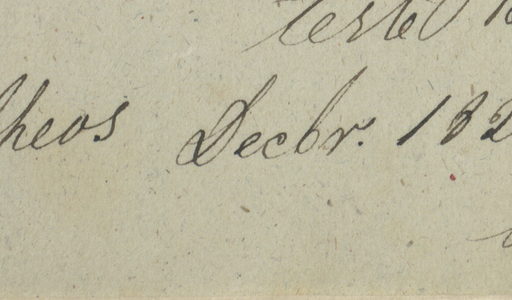 teste
heos Decbr. 182